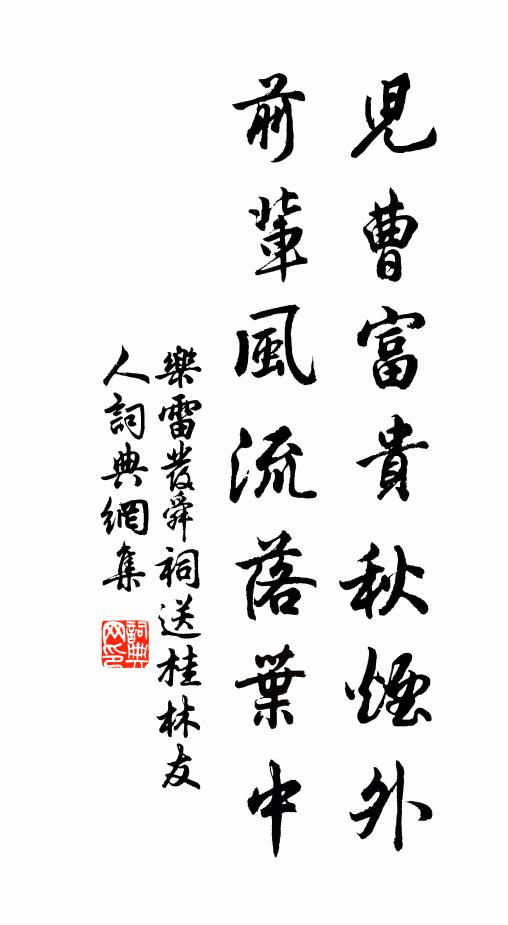 兒曹富貴秋煙外
前輩風流落葉中
樂雷發舜祠送桂林友
人詞典網集
詞典
网印